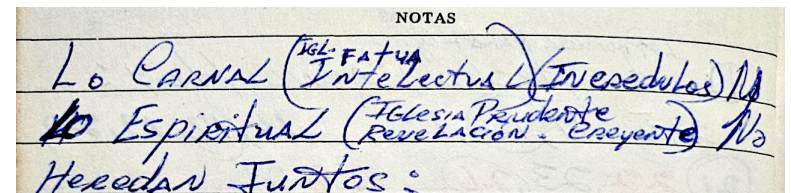 NOTAS
Lo CARNAL (IGL. FATUA INteLectuaL) (INcredulos) No
Lo EspirituaL (IGLesia Prudente RevelacióN. Creyente) No
HeredaN JuNtos: